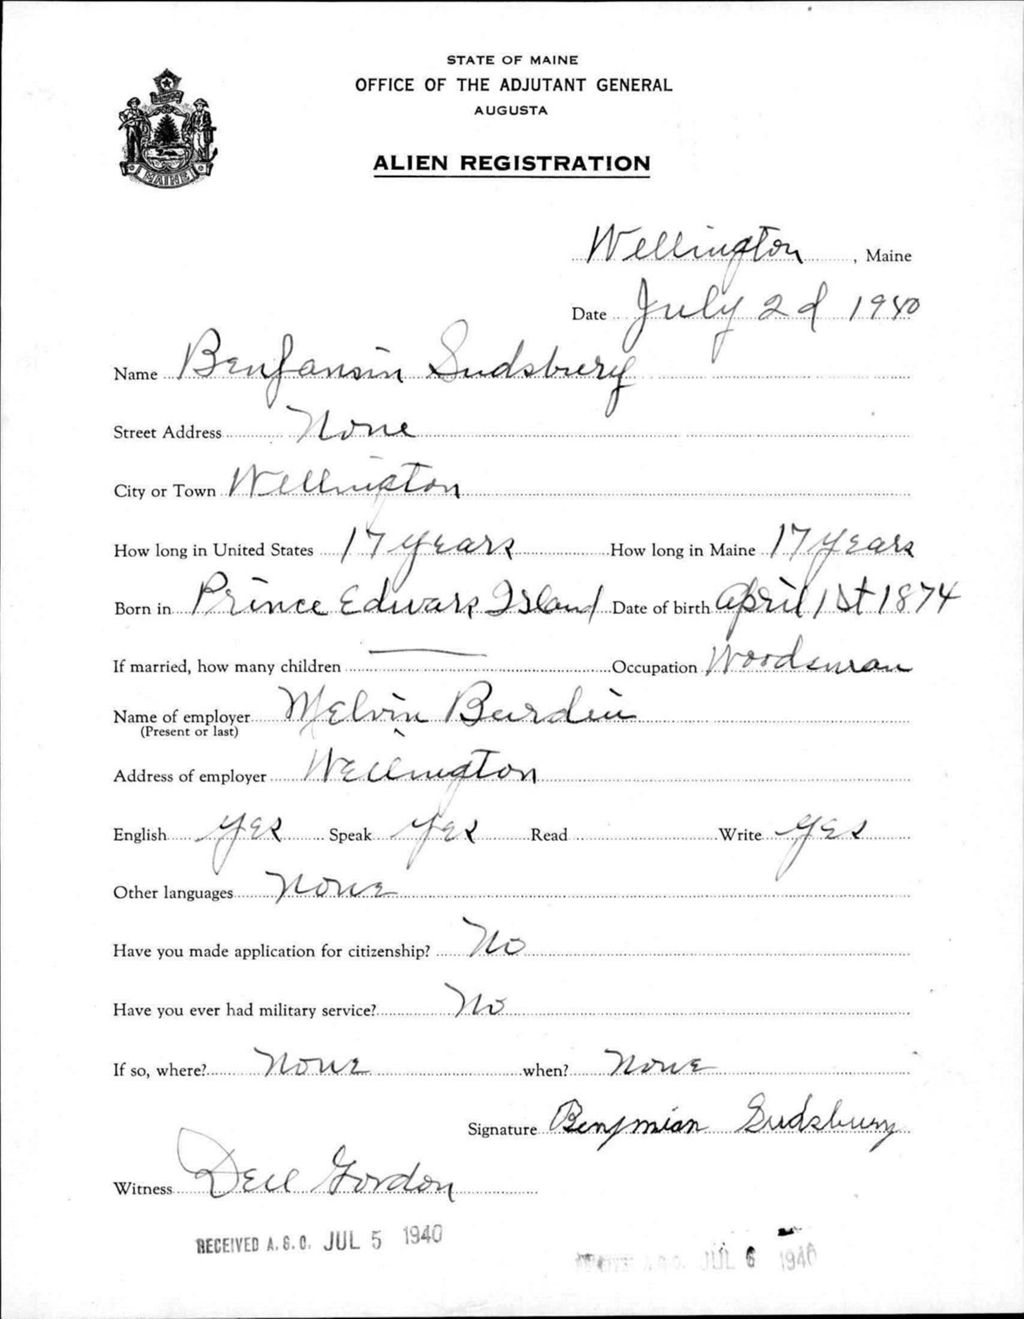 STATE OF MAINE
OFFICE OF THE ADJUTANT GENERAL
AUGUSTA
MAINE
ALIEN REGISTRATION
Wellington, Maine
Date July 2d 1940
Name Benjamin Sudsbury
Street Address None
City or Town Wellington
How long in United States 17 years How long in Maine 17 years
Born in Prince Edward Island Date of birth April 1st 1874
If married, how many children — Occupation Woodsman
Name of employer Melvin Burdin
(Present or last)
Address of employer Wellington
English yes Speak yes Read Write yes
Other languages None
Have you made application for citizenship? No
Have you ever had military service? No
If so, where? None when? None
Signature Benjmian Sudsbury
Witness Dell Gordon
RECEIVED A.G.O. JUL 5 1940
A.G.O. JUL 6 1940